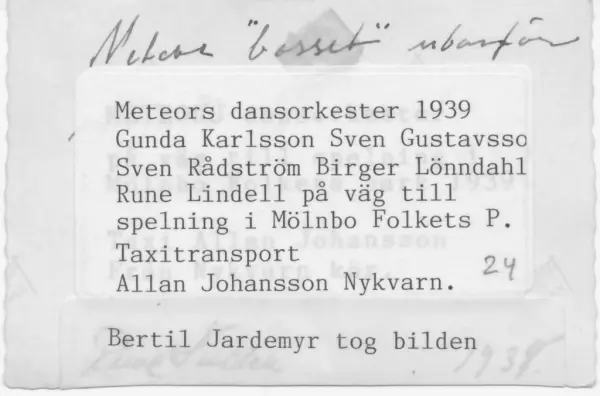 "bosset" utanför
Meteors dansorkester 1939
Gunda Karlsson Sven Gustavsso
Sven Rådström Birger Lönndahl
Rune Lindell på väg till
spelning i Mölnbo Folkets P.
Taxitransport
24
Allan Johansson Nykvarn.
Bertil Jardemyr tog bilden